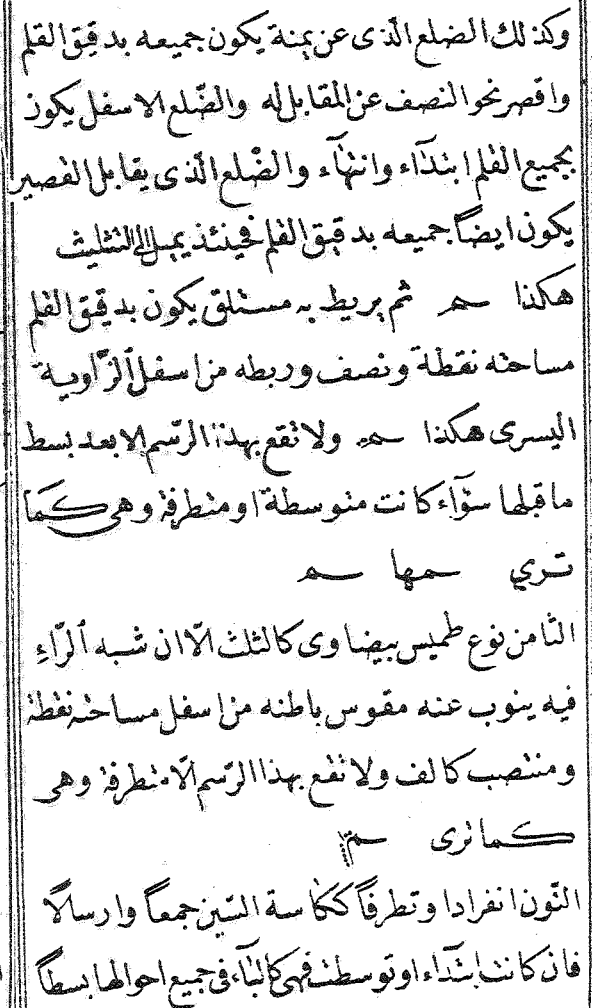 وكذلك الضلع الذى عن يمنة يكون جميعه بدقيق القلم
واقصر نحو النصف عن المقابل له والضّلع الاسفل يكون
بجميع القلم ابتدآء وانتهآء والضّلع الذى يقابل القصير
يكون ايضاً جميعه بدقيق القلم فحينئذ يميل الى التثليث
هكذا مـ ثم يربط به مستلق يكون بدقيق القلم
مساحته نقطة ونصف وربطه من اسفل الزّاوية
اليسرى هكذا مـ ولا تقع بهذا الرّسم الا بعد بسط
ما قبلها سوآء كانت متوسطة او متطرفة وهى كما
ترى سمها سم
الثامن نوع طميس بيضاوى كالثلث الّا ان شبه الرّاءِ
فيه ينوب عنه مقوس باطنه من اسفل مساحته نقطة
ومنتصب كالف ولا تقع بهذا الرّسم الّا متطرفة وهى
كما ترى م
النّون انفرادا وتطرفاً ككاسة السّين جمعاً وارسالًا
فان كانت ابتدآء او توسطت فهى كالبآء فى جميع احوالها بسطاً